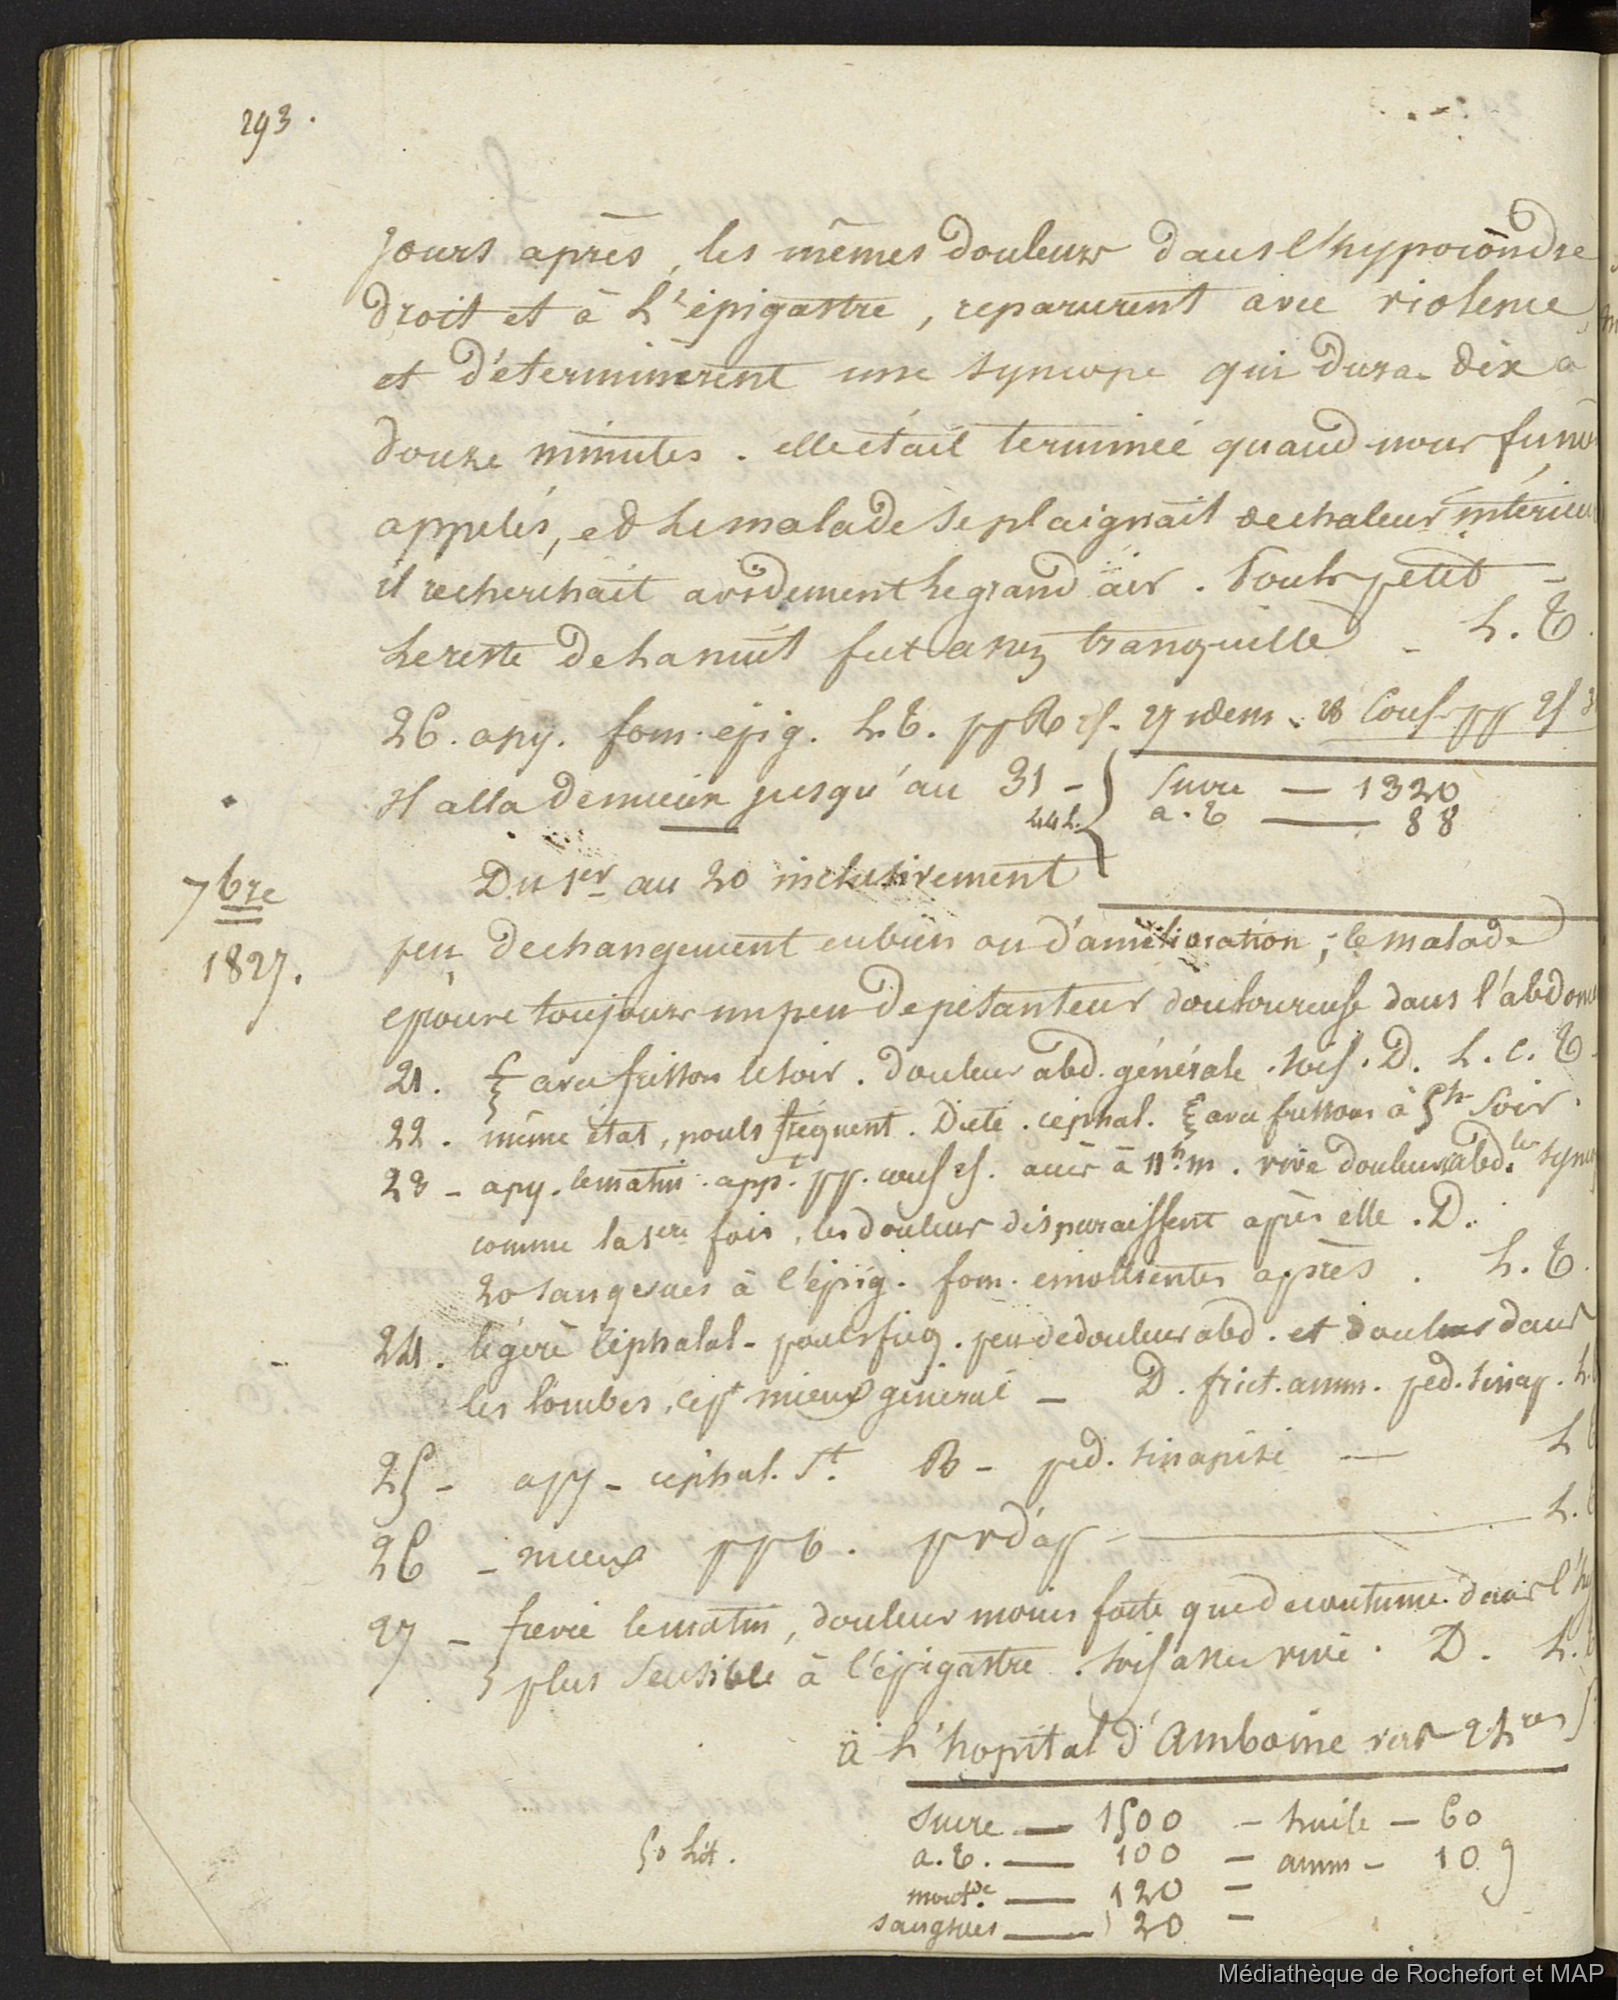 293.
jours après, les mêmes douleurs dans l'hypocondre
droit et à L'épigastre, reparurent avec violence,
et déterminèrent une syncope qui dura dix a
douze minutes. elle était terminée quand nous fumes
appelés, et Le malade se plaignait de chaleur intérieu
il recherchait avidement Le grand air. Pouls petit -
Le reste de La nuit fut assez tranquille - L. T.
26. apy. fom. épig. L.T. pp R 27 idem. 28 Couf. pp
Il alla de mieux jusqu'au 31 -
44 L.
Sucre — 1320
a. T — 88
7bre
1827.
Du 1er au 20 inclusivement
peu de changement en bien ou d'amélioration; le malade
eprouve toujours un peu de pesanteur douloureuse dans l'abdome
21. avec frisson le soir. douleur abd. générale. soif. D. L. C. T
22. même état, pouls fréquent. Diète. céphal. avec frissons à 5h Soir.
23 - apy. le matin. app.t pp. accès à 11h. m. vive douleur abd.le sync
comme la 1ere fois, les douleurs disparaissent après elle. D.
20 sangsues à l'épig. fom. emollientes après. L. T.
24. légère Céphalal - pouls freq. peu de douleur abd. et douleurs dans
les lombes, mieux général - D. frict. amm. ped. sinap. L.
25 - apy - céphal. St. R - ped. sinapisé — L
26 - mieux pp b. — L.
27 - fievre le matin, douleur moins forte que de coutume dans l'hy
plus Sensible à l'épigastre. soif assez vive. D. L.
à L'hopital d'Amboine
50 Lit.
Sucre — 1500 - huile - 60
a. T. — 100 - amm - 10 g
moutde. — 120 -
sangsues — 20 -
Médiathèque de Rochefort et MAP